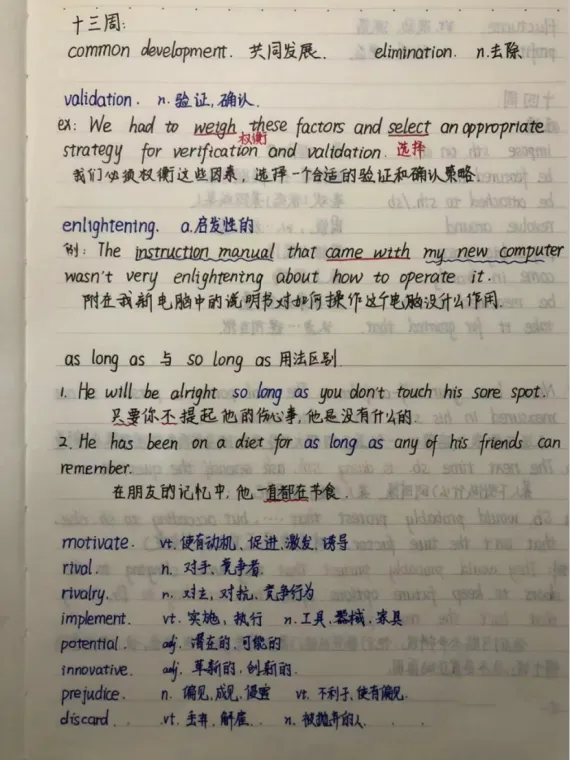 十三周:
common development. 共同发展. elimination. n.去除
validation. n. 验证,确认.
ex: We had to weigh these factors and select an appropriate
权衡
strategy for verification and validation. 选择
我们必须权衡这些因素,选择一个合适的验证和确认策略.
enlightening. a.启发性的
例: The instruction manual that came with my new computer
wasn't very enlightening about how to operate it.
附在我新电脑中的说明书对如何操作这个电脑没什么作用.
as long as 与 so long as 用法区别.
1. He will be alright so long as you don't touch his sore spot.
只要你不提起他的伤心事,他是没有什么的.
2. He has been on a diet for as long as any of his friends can
remember.
在朋友的记忆中,他一直都在节食.
motivate. vt. 使有动机、促进、激发、诱导
rival. n. 对手,竞争者
rivalry. n. 对立,对抗,竞争行为
implement. vt. 实施,执行 n.工具,器械,家具
potential. adj. 潜在的,可能的
innovative. adj. 革新的,创新的.
prejudice. n. 偏见,成见,侵害 vt. 不利于,使有偏见.
discard. vt. 丢弃,解雇. n. 被抛弃的人.